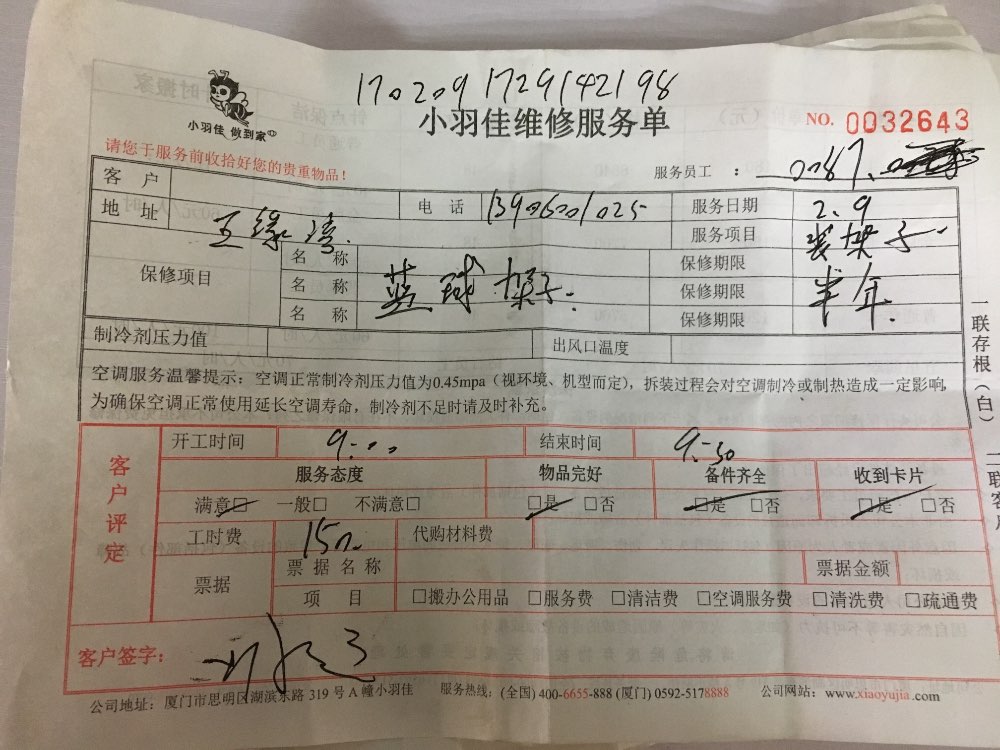 1702091729142198
小羽佳 做到家
小羽佳维修服务单
NO. 0032643
请您于服务前收拾好您的贵重物品！
服务员工 ： 0087.
客 户
地 址
电 话 13906001025 服务日期 2.9
服务项目 装架子.
保修项目 名 称 保修期限
名 称 蓝球架子. 保修期限 半年.
名 称 保修期限
制冷剂压力值 出风口温度
空调服务温馨提示：空调正常制冷剂压力值为0.45mpa（视环境、机型而定），拆装过程会对空调制冷或制热造成一定影响，
为确保空调正常使用延长空调寿命，制冷剂不足时请及时补充。
一联存根（白）
二联客户
客户评定
开工时间 9:00 结束时间 9:50
服务态度 物品完好 备件齐全 收到卡片
满意□ 一般□ 不满意□ □是 □否 □是 □否 □是 □否
工时费 150. 代购材料费
票据 票据名称 票据金额
项 目 □搬办公用品 □服务费 □清洁费 □空调服务费 □清洗费 □疏通费
客户签字：
公司地址：厦门市思明区湖滨东路 319 号 A 幢小羽佳 服务热线：(全国) 400-6655-888 (厦门) 0592-5178888 公司网站：www.xiaoyujia.com